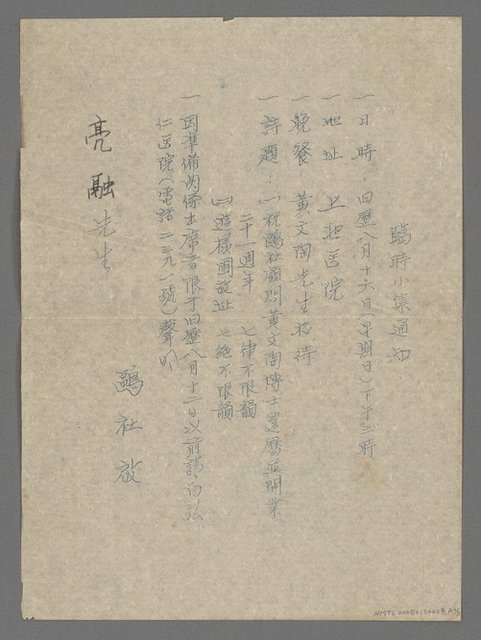 臨時小集通知
一 日時：旧歷八月十六日(星期日)下午三時
一 地址 上池医院
一 晚餐 黃文陶先生招待
一 詩題：(一)祝鷗社顧問黃文陶博士還曆並開業
二十一週年 七律不限韻
(二)遊橫圃故址 七絕不限韻
一 因準備関係出席者限于旧歷八月十二日以前請向弘
仁医院(電話二三九一號)聲明
鷗社啟
亮融先生
NMTL20080130004